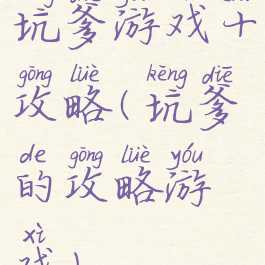 坑爹游戏十
gōng lüè kēng diē
攻略(坑爹
de gōng lüè yóu
的攻略游
xì
戏)